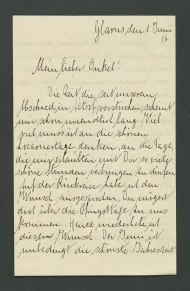 Glarus, den 1. Juni
16
Mein lieber Onkel!
Die Zeit, die seit unserem
Abschied in verstrichen, scheint
mir schon unendlich lang. Viel
viel muss ich an die schönen
denken, an die Tage,
die mir erlaubten mit Dir so viele
schöne Stunden verbringen zu dürfen.
Auf der Rückreise habe ich den
Wunsch ausgesprochen, Du mögest
doch über die Pfingsttage zu uns
kommen. Heute wiederhole ich
diesen Wunsch. Der Juni ist
unbedingt die schönste Jahreszeit